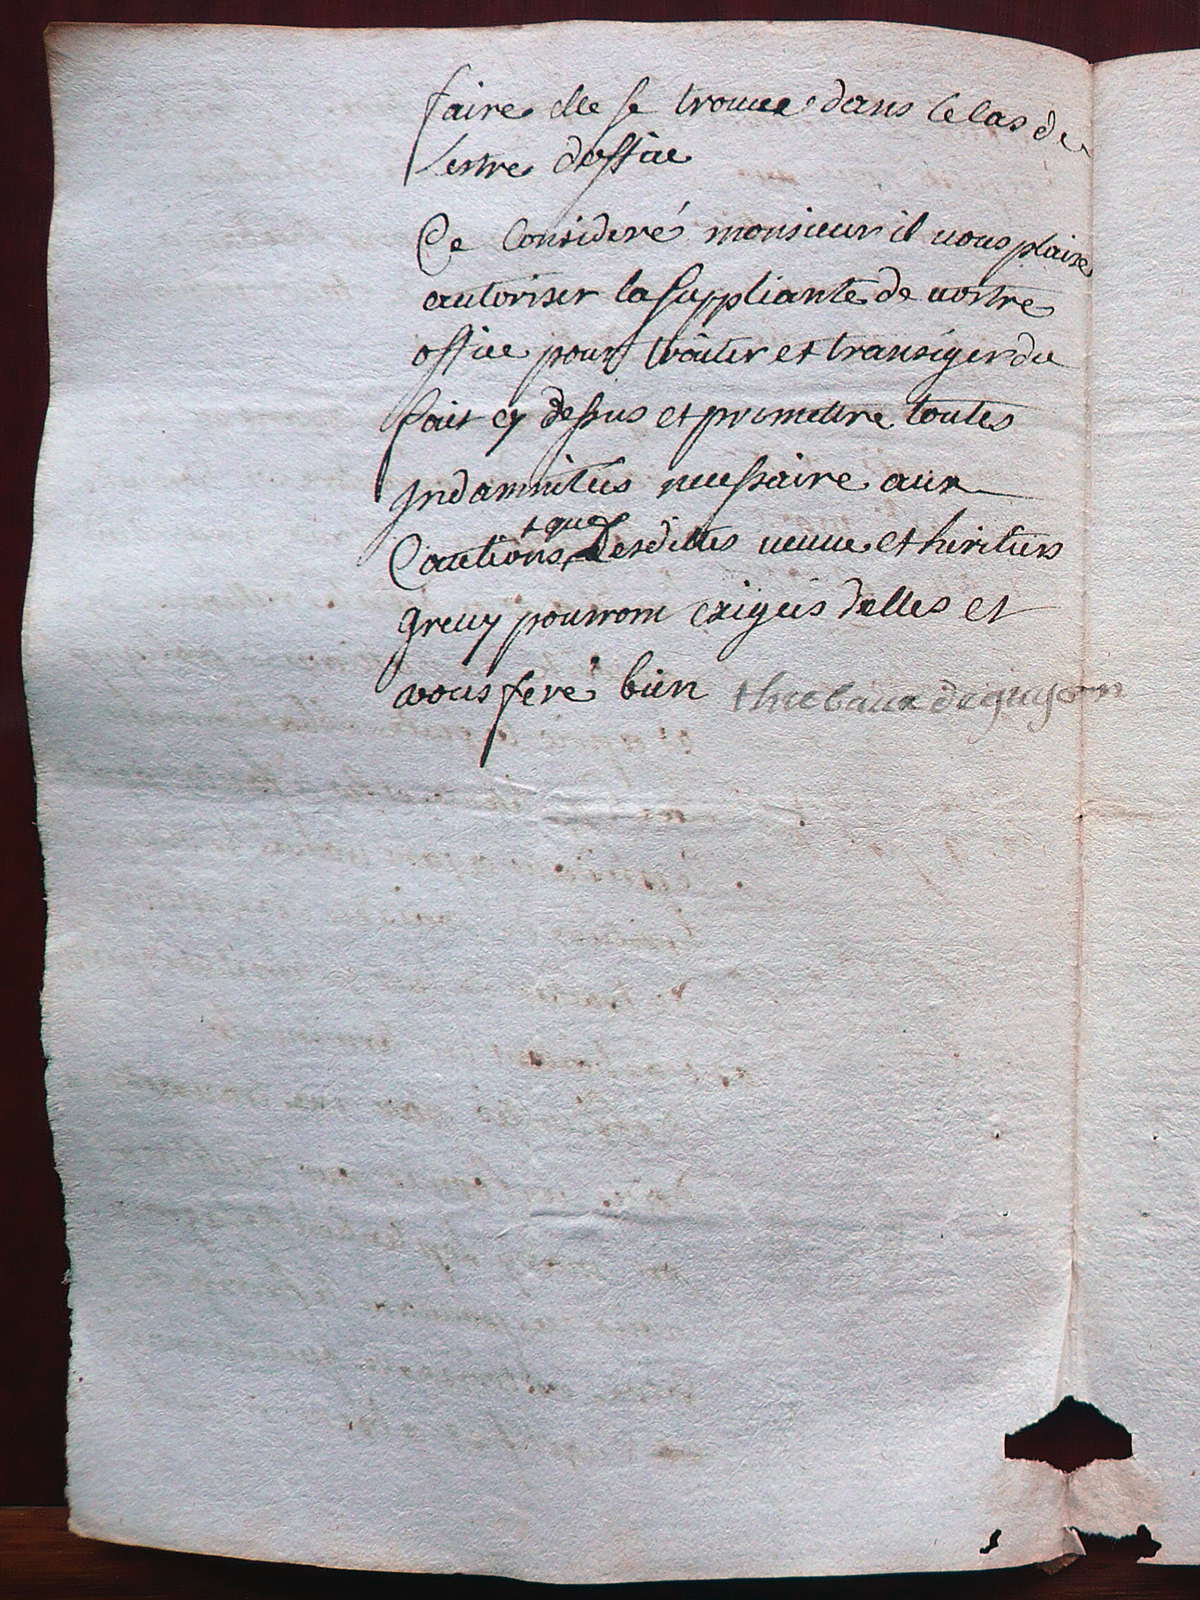 faire elle se trouve dans le cas de
lestre doffice
Ce Consideré monsieur il vous plaise
autoriser la suppliante de vostre
office pour traiter et transiger du
fait cy dessus et promettre toutes
Indamnités necessaire aux
Cautions que
desdittes veuve et heritiers
greuy pourront exigés delles et
vous feré bien thiebaux deguyon